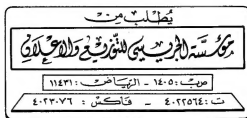 يُطلب من
مؤسسة الجريسي للتوزيع والإعلان
ص.ب: ١٤٠٥ - الرياض: ١١٤٣١
ت: ٤٠٢٢٥٦٤ - فاكس: ٤٠٢٣٠٧٦